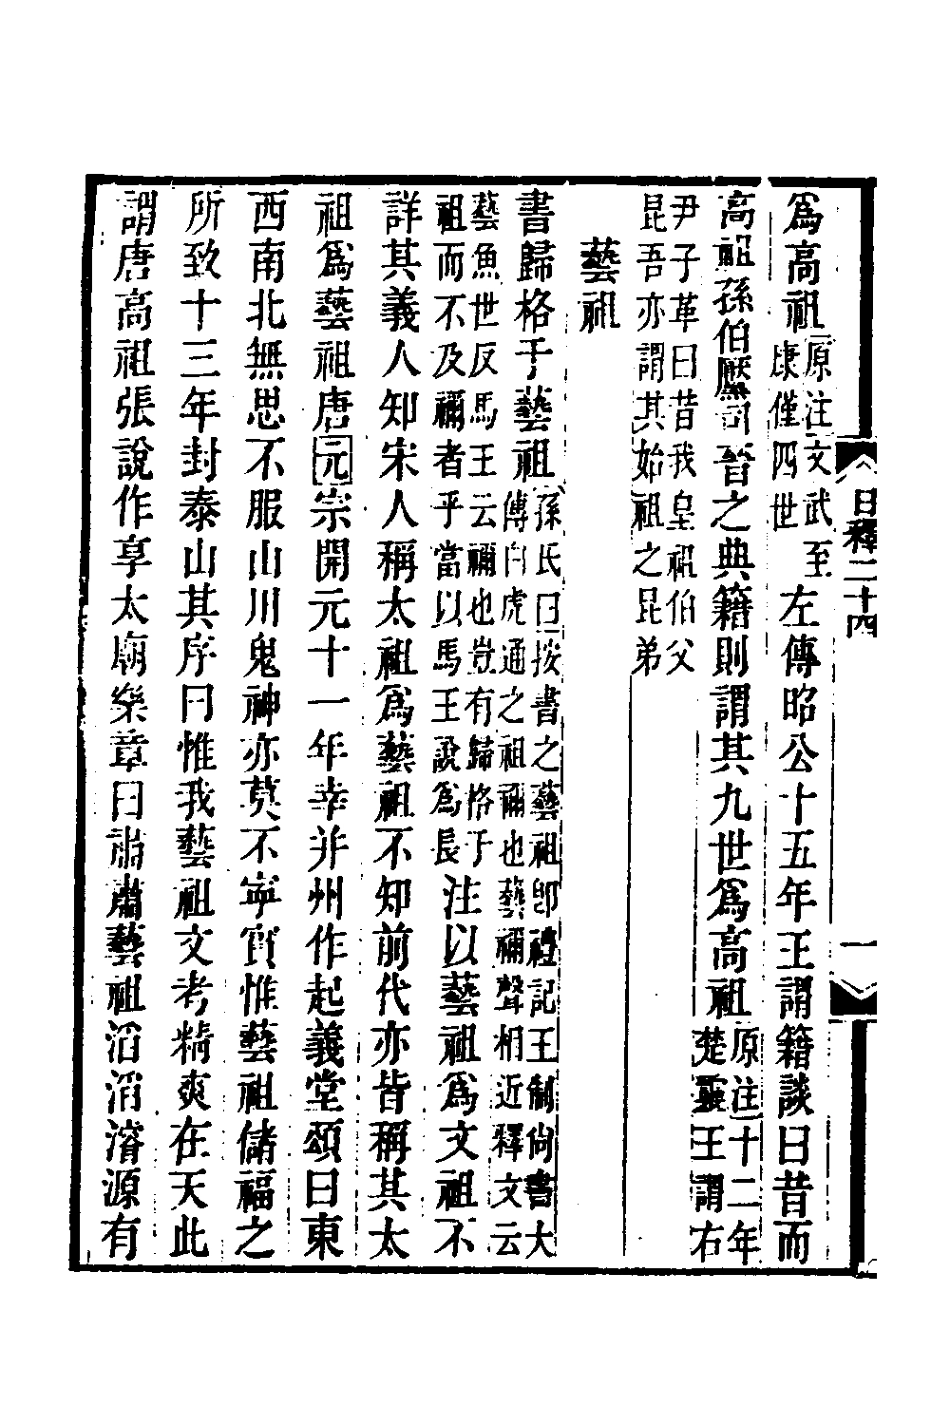 日釋二十四 一
爲高祖原注文武至康僅四世左傳昭公十五年王謂籍談曰昔而
高祖孫伯黶司晉之典籍則謂其九世爲高祖原注十二年楚靈王謂右
尹子革曰昔我皇祖伯父昆吾亦謂其始祖之昆弟
藝祖
書歸格于藝祖孫氏曰按書之藝祖卽禮記王制尙書大傳白虎通之祖禰也藝禰聲相近釋文云
藝魚世反馬王云禰也豈有歸格于祖而不及禰者乎當以馬王說爲長注以藝祖爲文祖不
詳其義人知宋人稱太祖爲藝祖不知前代亦皆稱其太
祖爲藝祖唐元宗開元十一年幸并州作起義堂頌曰東
西南北無思不服山川鬼神亦莫不寧實惟藝祖儲福之
所致十三年封泰山其序曰惟我藝祖文考精爽在天此
謂唐高祖張說作享太廟樂章曰肅肅藝祖滔滔濬源有